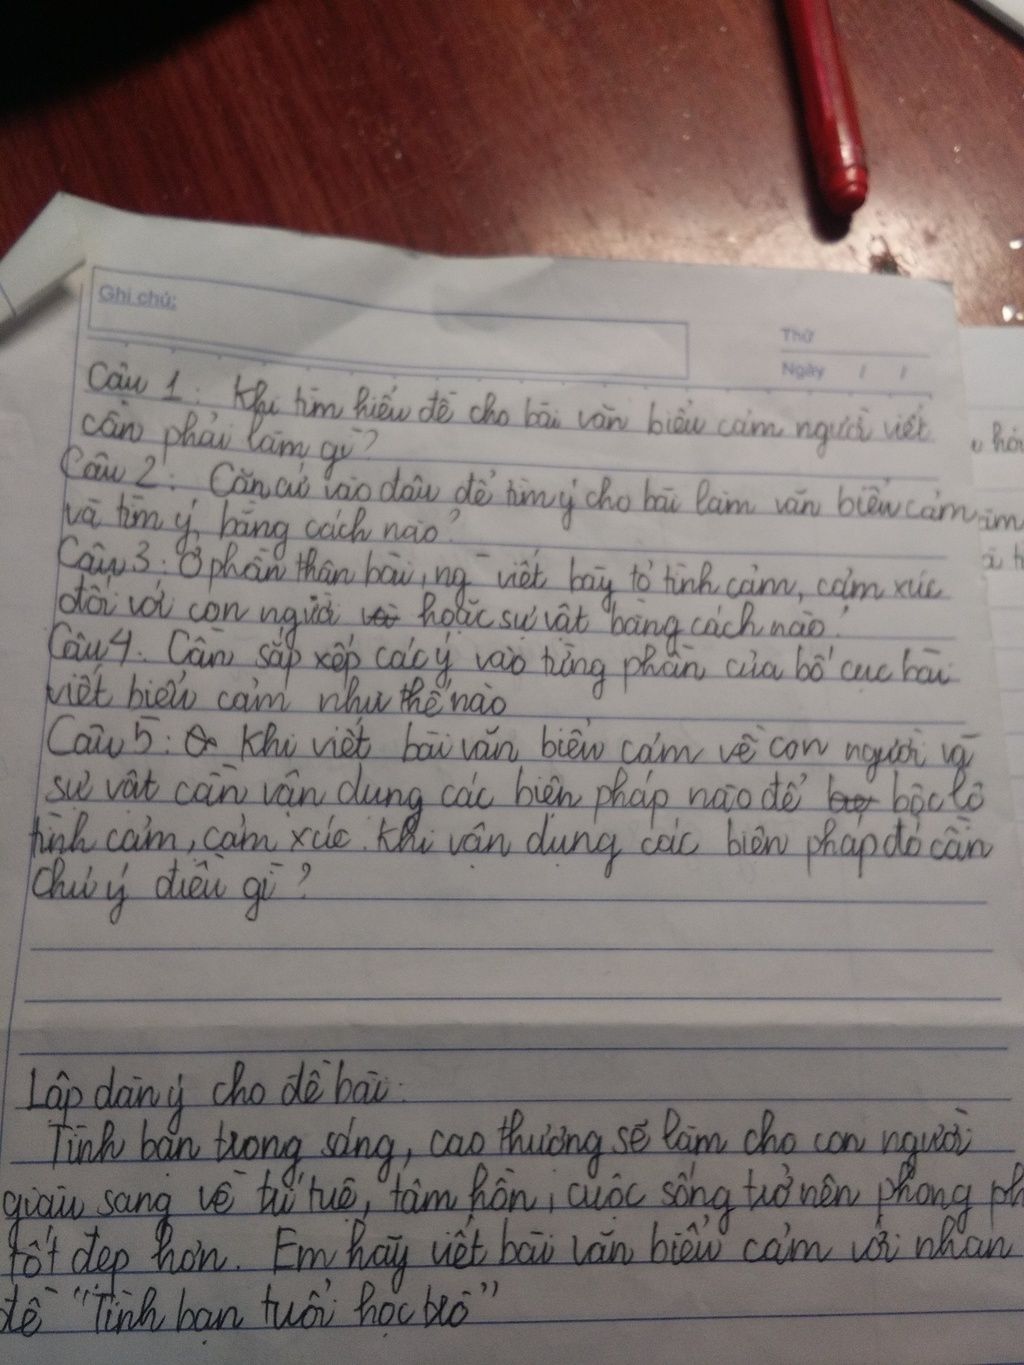 Ghi chú:
Thứ
Ngày / /
Câu 1: Khi tìm hiểu đề cho bài văn biểu cảm người viết
cần phải làm gì?
Câu 2: Căn cứ vào đâu để tìm ý cho bài làm văn biểu cảm
và tìm ý bằng cách nào?
Câu 3: Ở phần thân bài, ng viết bày tỏ tình cảm, cảm xúc
đối với con người hoặc sự vật bằng cách nào?
Câu 4. Cần sắp xếp các ý vào từng phần của bố cục bài
viết biểu cảm như thế nào
Câu 5: Khi viết bài văn biểu cảm về con người và
sự vật cần vận dụng các biện pháp nào để bộc lộ
tình cảm, cảm xúc. Khi vận dụng các biện pháp đó cần
chú ý điều gì?
Lập dàn ý cho đề bài:
Tình bạn trong sáng, cao thượng sẽ làm cho con người
giàu sang về trí tuệ, tâm hồn, cuộc sống trở nên phong ph
tốt đẹp hơn. Em hãy viết bài văn biểu cảm với nhan
đề "Tình bạn tuổi học trò"